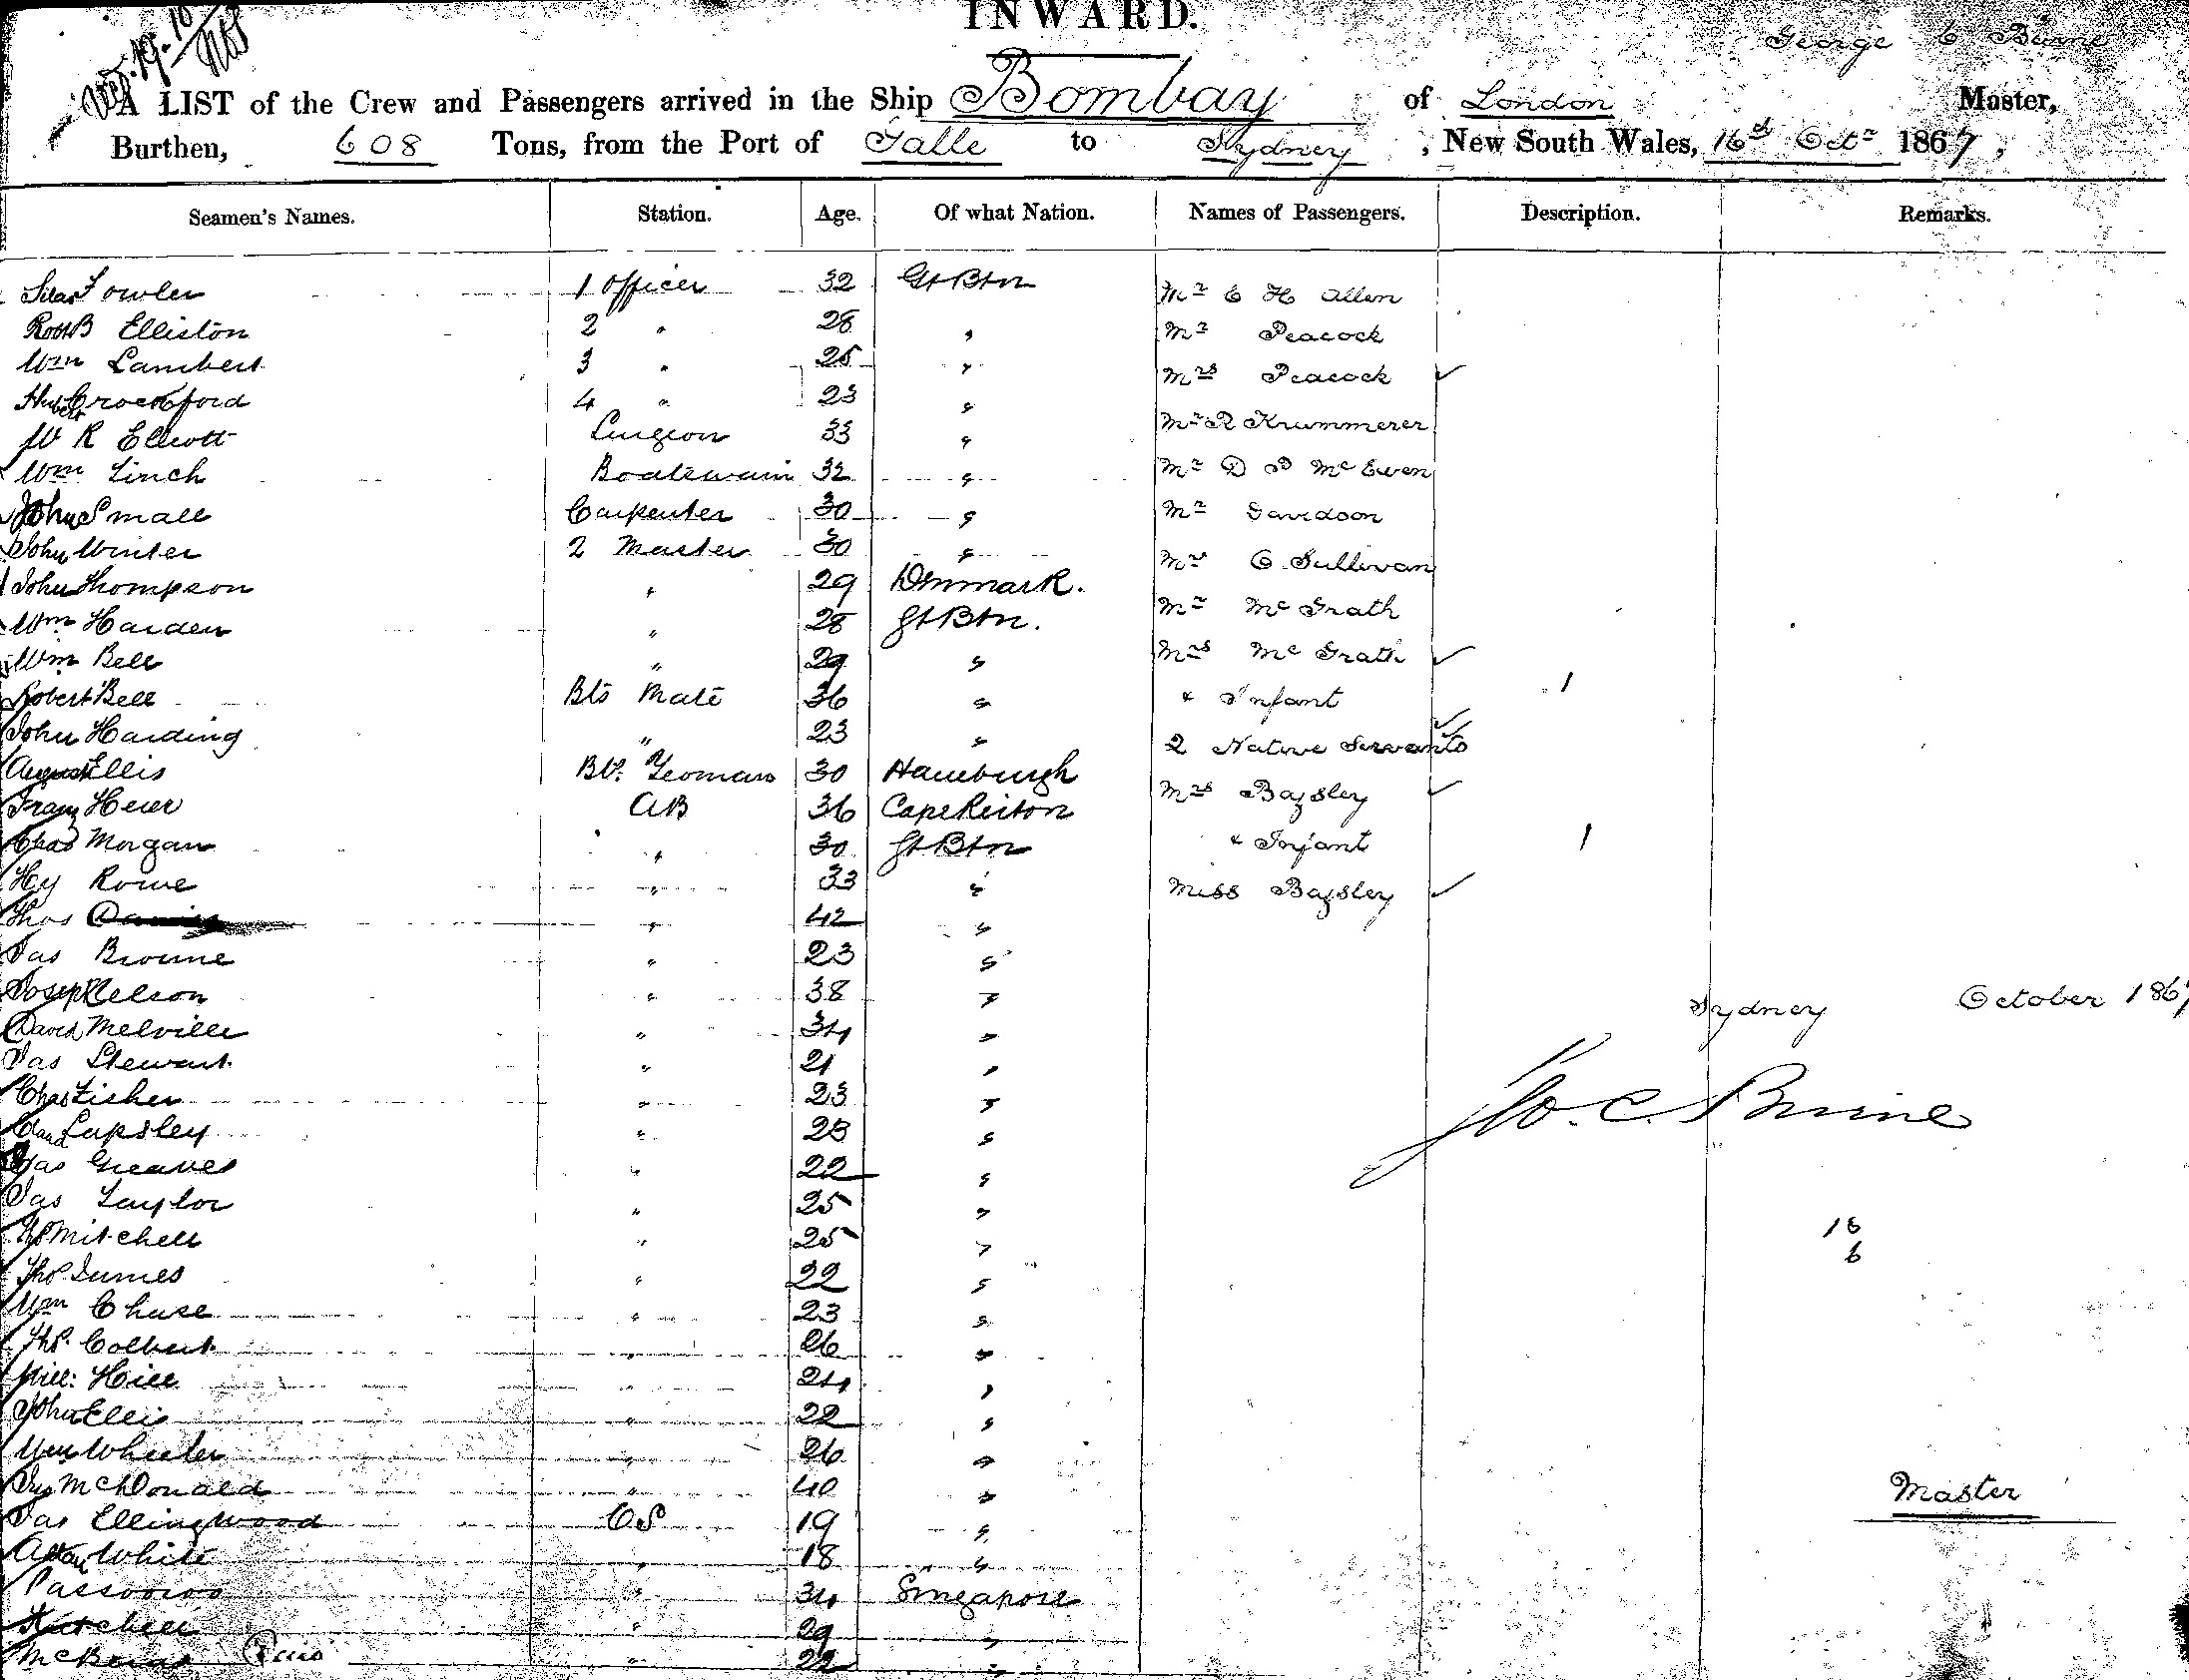 INWARD.
George C Brine
A LIST of the Crew and Passengers arrived in the Ship Bombay of London Master,
Burthen, 608 Tons, from the Port of Galle to Sydney, New South Wales, 16th Octr 1867,
Seamen's Names. Station. Age. Of what Nation. Names of Passengers. Description. Remarks.
Silas Fowler 1 Officer 32 Gt Btn Mr C H Allen
Robt B Elliston 2 " 28 " Mr Peacock
Wm Lambert 3 " 25 " Mrs Peacock ✓
Crockford 4 " 23 " Mr R Krummerer
W R Elliott Surgeon 33 " Mr D P McEwen
Wm Linch Boatswain 32 " Mr Davidson
John Small Carpenter 30 "
John Winter 2 Master 30 " O Sullivan
John Thompson " 29 Denmark. Mr McGrath
Wm Harden " 28 Gt Btn.
Wm Bell " 29 " Mrs McGrath ✓
Robert Bell Bts Mate 36 " & Infant 1
John Harding " 23 " 2 Native Servants ✓✓
August Ellis Yeoman 30 Hamburgh Mrs Bazsley ✓
Franz Heier AB 36
Chas Morgan " 30 Gt Btn & Infant 1
Hy Rowe " 33 " Miss Bazsley ✓
Thos " 42 "
Jas Browne " 23 "
Joseph Nelson " 38 " Sydney October 1867
David Melville " 34 "
Jas Stewart " 21 "
Chas Fisher " 23 "
Lapsley " 23 " Geo. C. Brine
Jas Greaves " 22 "
Jas Taylor " 25 "
Mitchell " 25 " 18
6
Thos " 22 "
Wm Chase " 23 "
Thos. Colbert " 26 "
Will: Hill " 24 "
John Ellis " 22 "
Wm Wheeler " 26 "
McDonald " 40 " Master
Jas Ellingwood OS 19 "
White " 18 "
" 34 Singapore
" 29 "
" 22 "